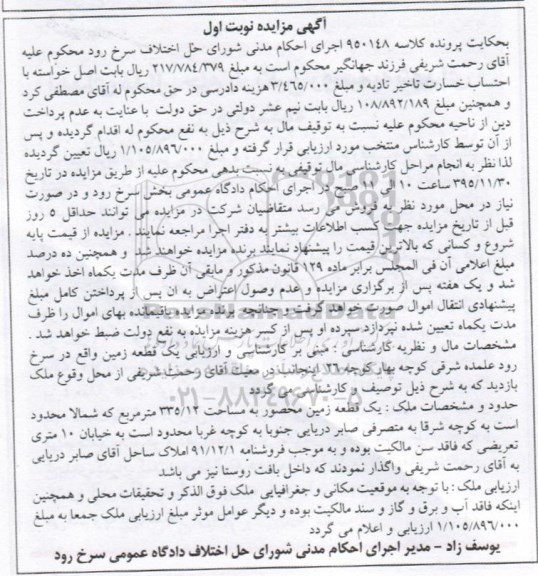 آگهی مزایده نوبت اول
بحکایت پرونده کلاسه ۹۵۰۱۴۸ اجرای احکام مدنی شورای حل اختلاف سرخ رود محکوم علیه
آقای رحمت شریفی فرزند جهانگیر محکوم است به مبلغ ۲۱۷/۷۸۴/۳۷۹ ریال بابت اصل خواسته با
احتساب خسارت تاخیر تادیه و مبلغ ۳/۴۶۵/۰۰۰ هزینه دادرسی در حق محکوم له آقای مصطفی کرد
و همچنین مبلغ ۱۰۸/۸۹۲/۱۸۹ ریال بابت نیم عشر دولتی در حق دولت با عنایت به عدم پرداخت
دین از ناحیه محکوم علیه نسبت به توقیف مال به شرح ذیل به نفع محکوم له اقدام گردیده و پس
از آن توسط کارشناس منتخب مورد ارزیابی قرار گرفته و مبلغ ۱/۱۰۵/۸۹۶/۰۰۰ ریال تعیین گردیده
لذا نظر به انجام مراحل کارشناسی مال توقیفی به نسبت بدهی محکوم علیه از طریق مزایده در تاریخ
۳۹۵/۱۱/۳۰ ساعت ۱۰ الی ۱۱ صبح در اجرای احکام دادگاه عمومی بخش سرخ رود و در صورت
نیاز در محل مورد نظر به فروش می رسد متقاضیان شرکت در مزایده می توانند حداقل ۵ روز
قبل از تاریخ مزایده جهت کسب اطلاعات بیشتر به دفتر اجرا مراجعه نمایند . مزایده از قیمت پایه
شروع و کسانی که بالاترین قیمت را پیشنهاد نمایند برنده مزایده خواهند شد و همچنین ده درصد
مبلغ اعلامی آن فی المجلس برابر ماده ۱۲۹ قانون مذکور و مابقی آن ظرف مدت یکماه اخذ خواهد
شد و یک هفته پس از برگزاری مزایده و عدم وصول اعتراض به ان پس از پرداختن کامل مبلغ
پیشنهادی انتقال اموال صورت خواهد گرفت و چنانچه برنده مزایده باقیمانده بهای اموال را ظرف
مدت یکماه تعیین شده نپردازد سپرده او پس از کسر هزینه مزایده به نفع دولت ضبط خواهد شد .
مشخصات مال و نظریه کارشناسی : مبنی بر کارشناسی و ارزیابی یک قطعه زمین واقع در سرخ
رود علمده شرقی کوچه بهار کوچه ۲۶ اینجانب در معیت آقای رحمت شریفی از محل وقوع ملک
بازدید که به شرح ذیل توصیف و کارشناسی می گردد
۰۲۱-۸۸۳۴۹۶۷۰-۵
حدود و مشخصات ملک : یک قطعه زمین محصور به مساحت ۳۳۵/۱۳ مترمربع که شمالا محدود
است به کوچه شرقا به متصرفی صابر دریایی جنوبا به کوچه غربا محدود است به خیابان ۱۰ متری
تعریضی که فاقد سن مالکیت بوده و به موجب فروشنامه ۹۱/۱۲/۱ املاک ساحل آقای صابر دریایی
به آقای رحمت شریفی واگذار نمودند که داخل بافت روستا نیز می باشد
ارزیابی ملک : با توجه به موقعیت مکانی و جغرافیایی ملک فوق الذکر و تحقیقات محلی و همچنین
اینکه فاقد آب و برق و گاز و سند مالکیت بوده و دیگر عوامل موثر مبلغ ارزیابی ملک جمعا به مبلغ
۱/۱۰۵/۸۹۶/۰۰۰ ارزیابی و اعلام می گردد
یوسف زاد – مدیر اجرای احکام مدنی شورای حل اختلاف دادگاه عمومی سرخ رود